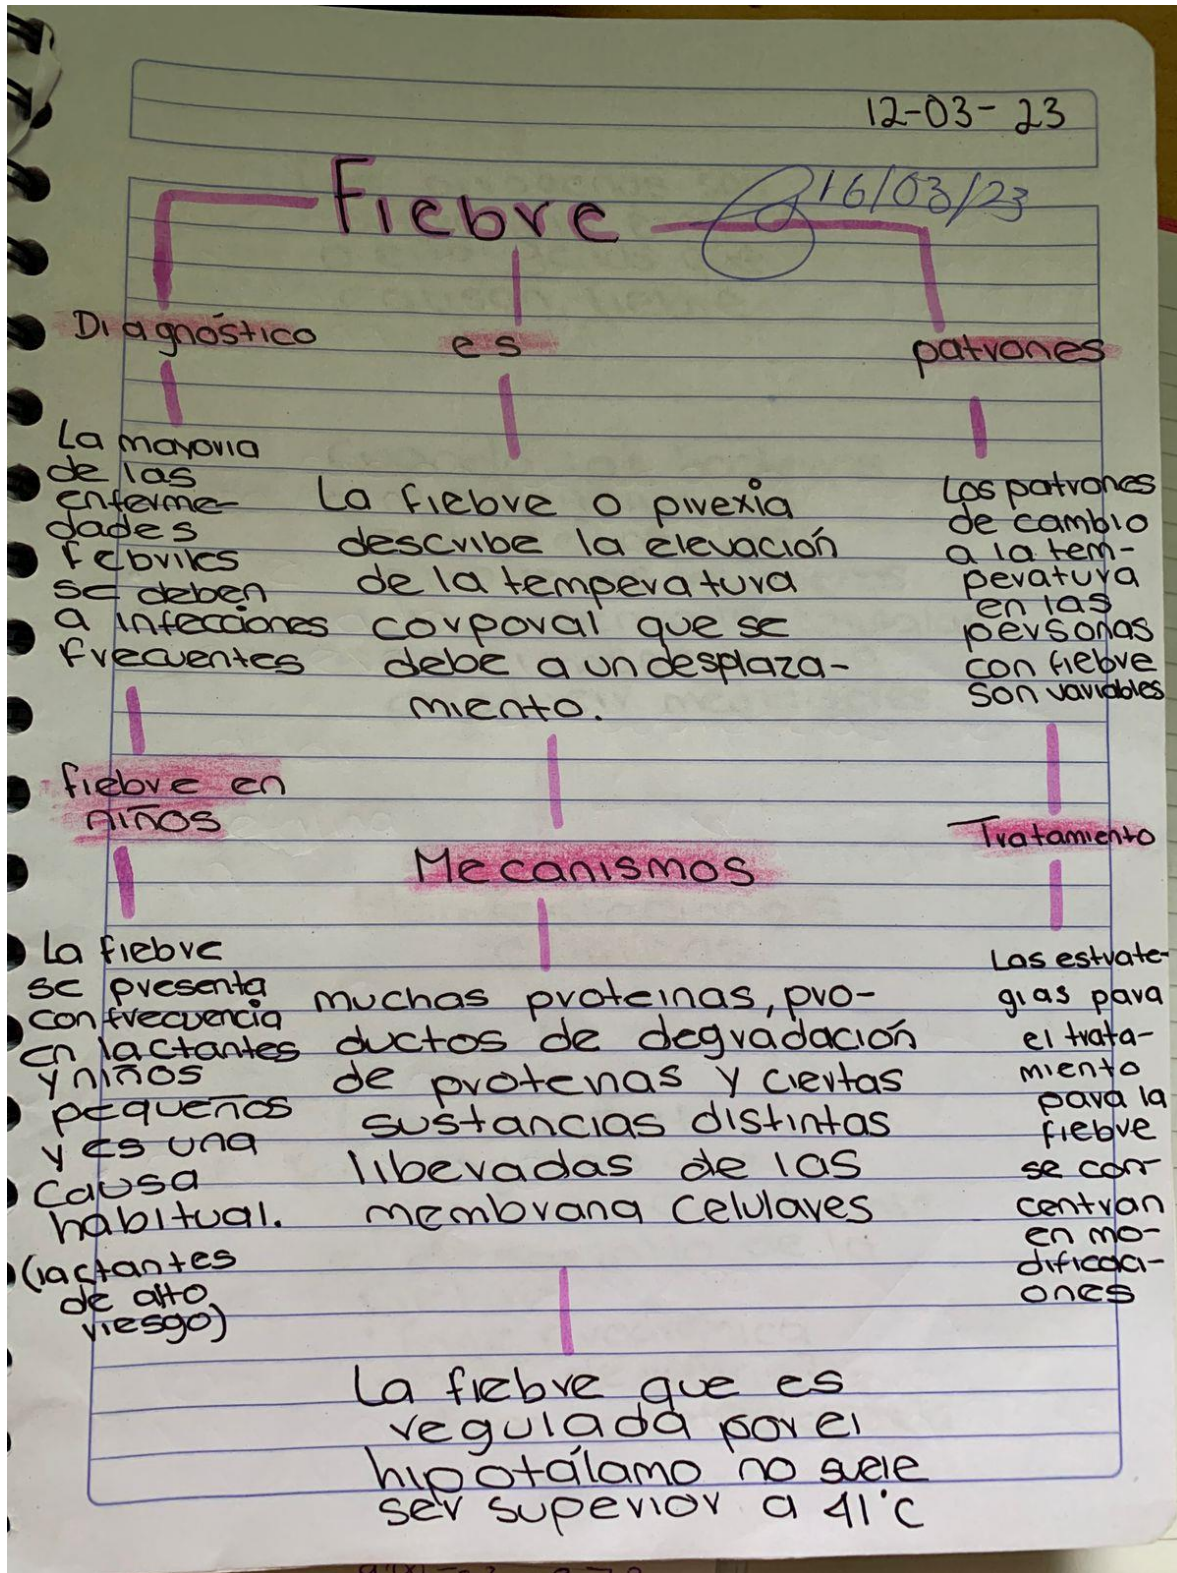 12-03-23
16/03/23
Fiebre
Diagnóstico
La mayoria
de las
enferme-
dades
febriles
se deben
a infecciones
frecuentes
fiebre en
niños
La fiebre
se presenta
con frecuencia
en lactantes
y niños
pequeños
y es una
causa
habitual.
(lactantes
de alto
riesgo)
es
La fiebre o pirexia
describe la elevación
de la temperatura
corporal que se
debe a un desplaza-
miento.
Mecanismos
muchas proteinas, pro-
ductos de degradación
de protenas y ciertas
sustancias distintas
liberadas de las
membrana celulares
La fiebre que es
regulada por el
hipotálamo no suele
ser superior a 41°C
patrones
Los patrones
de cambio
a la tem-
peratura
en las
personas
con fiebre
son variables
Tratamiento
Las estrate-
gias para
el trata-
miento
para la
fiebre
se con-
centran
en mo-
dificaci-
ones